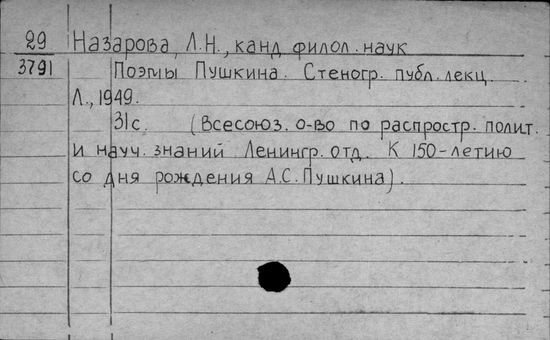 29 Назарова, Л.Н., канд филол. наук
3791 Поэмы Пушкина. Стеногр. публ. лекц.
Л., 1949.
31 с. (Всесоюз. о-во по распростр. полит.
и науч. знаний Ленингр. отд. К 150-летию
со дня рождения А.С. Пушкина).